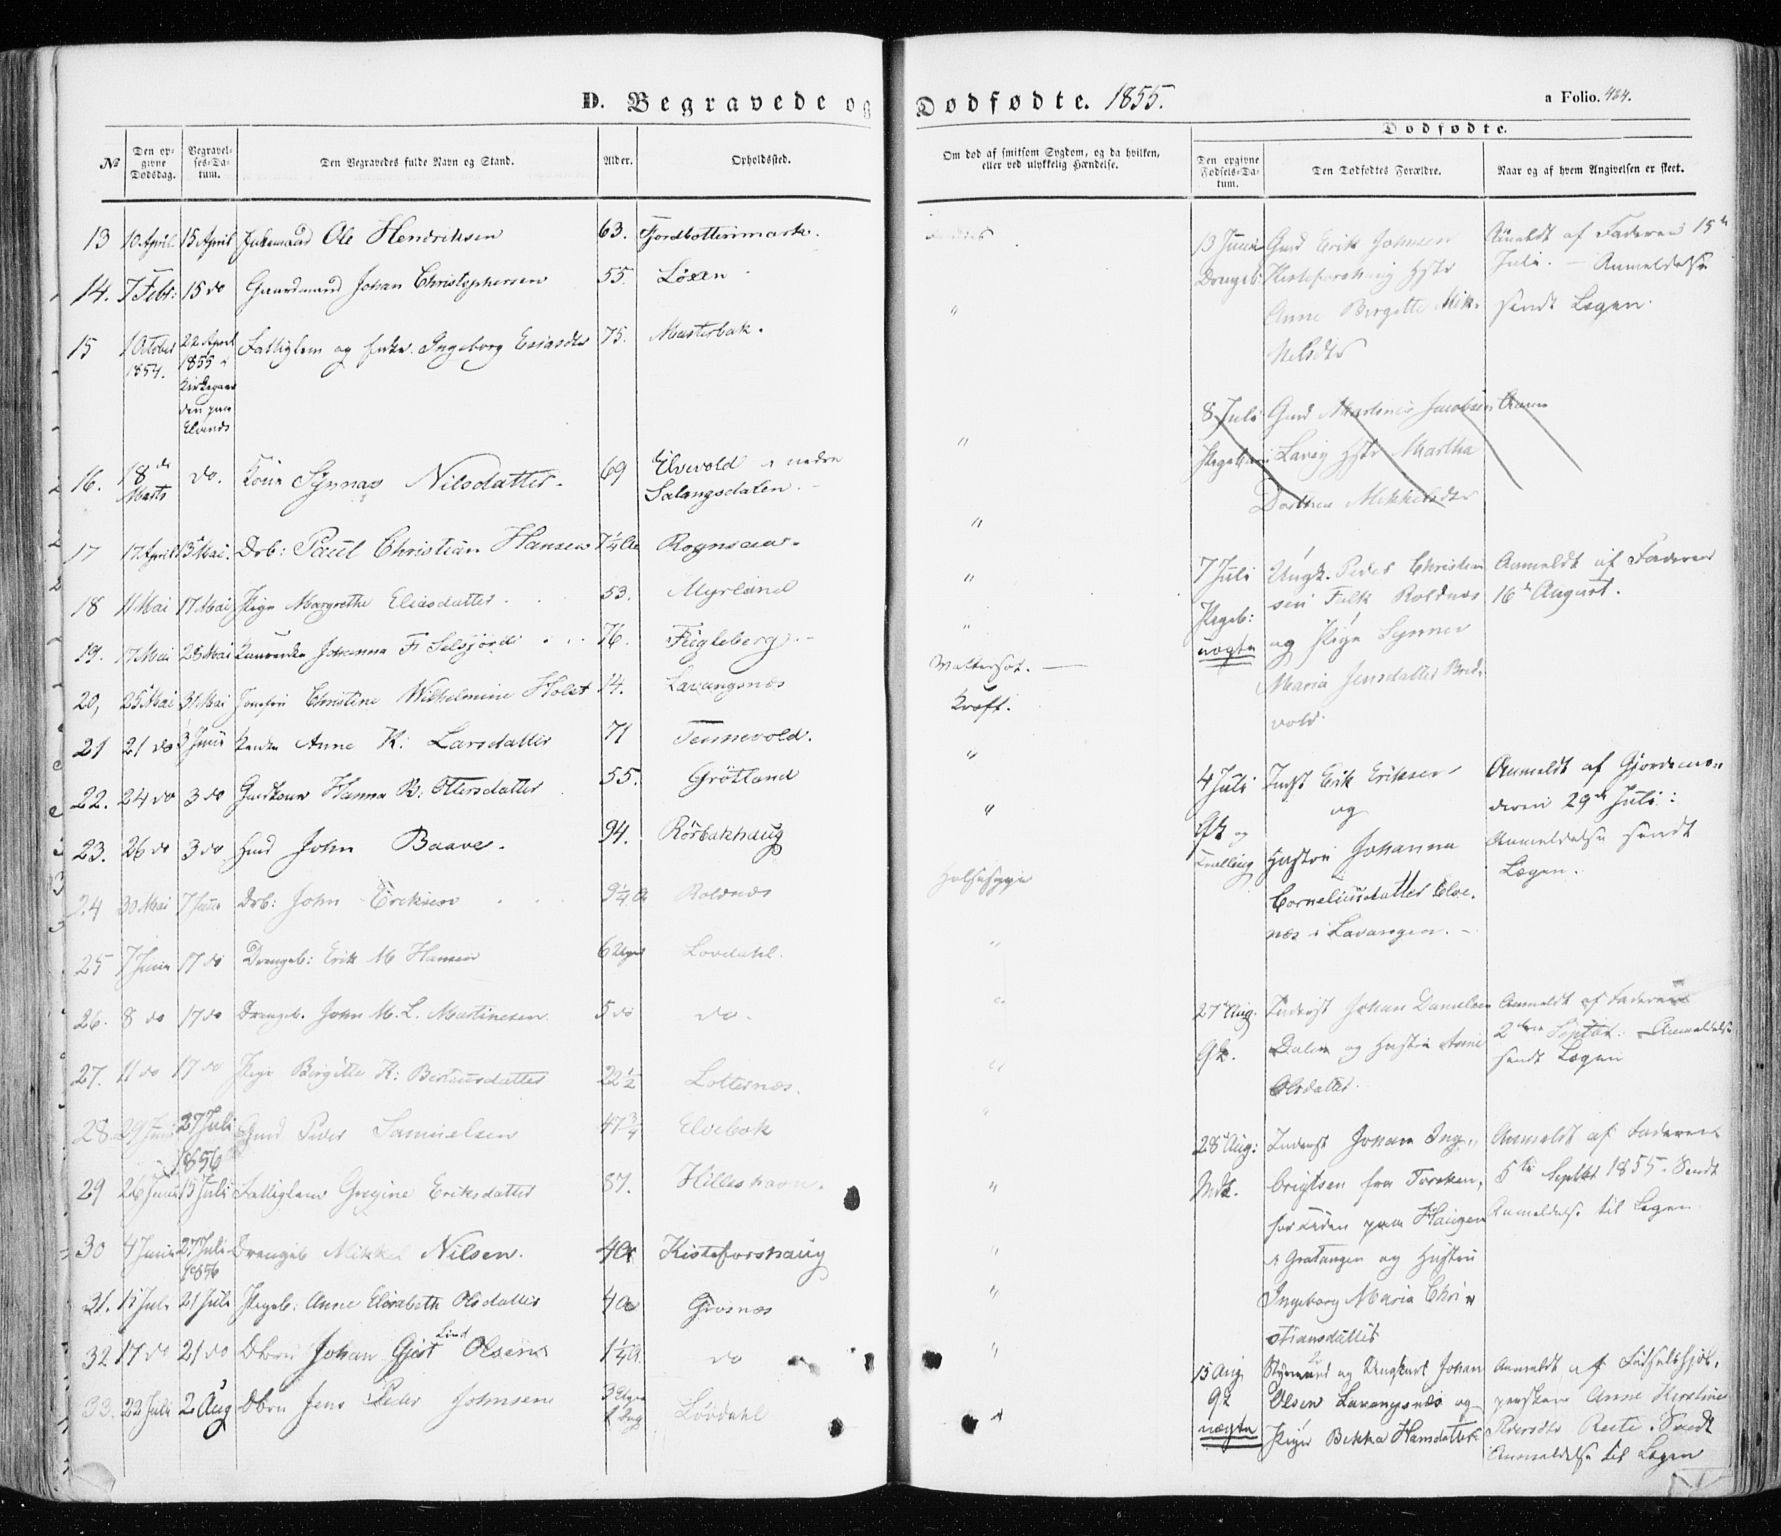 D. Begravede og Dødfødte. 1855.
a Folio. 424.
№
Den opgivne Dødsdag.
Begravelses-Datum.
Den Begravedes fulde Navn og Stand.
Alder.
Opholdssted.
Om død af smitsom Sygdom, og da hvilken, eller ved ulykkelig Hændelse.
Dødfødte.
Den opgivne Fødsels-Datum.
Den Dødfødtes Forældre.
Naar og af hvem Angivelsen er skeet.
13 10 April 15 April Ole Hendriksen 63. Fjordbottenmark.
14. 7 Febr: 15 do Gaardmand Johan Christophersen 55. Løxen
15 1 October 1854. 22 April 1855 Kirkegaarden paa Elvenes Fattiglem og Enke Ingeborg Esiasdtr 75. Mosterbak.
16. 18de Marts do. Kone Synnav Nilsdatter. 69 Elvevold i nedre Salangsdalen.
17 17 April 13 Mai. Drb: Paul Christian Hansen 7¼ Rognsaa.
18 11 Mai 17 Mai Pige Margrethe Eliasdatter. 53. Myrland
19. 17 Mai 28 Mai Johanna F. Selsjord 76. Fugleberg.
20, 25 Mai 31 Mai Jomfru Christine Wilhelmine Holst 14. Lavangsnæs
Kræft.
21 21 do 3 Junii Enke Anne K: Larsdatter 71 Tennevold.
22. 24 do 3 do Gmdkone Hanna B: Ottersdatter 55. Grøtland
23. 26 do 3 do John Baave. 94. Rørbakhaug
24 30 Mai 7 Juni Drb: John Eriksen 9¼ Roldnæs
Halssyge
25 7 Junii 17 do Drengeb: Erik M Hansen 6 Uger Lovdahl.
26. 8 do 17 do Drengeb. John M. L. Martinesen. 5 do do.
27. 11 do 17 do Pige Birgitte K: 22½ Lotternæs.
28 29 Junii 27 Juli 1856 Gmd Peder Samuelsen 47¾ Elvebak
29 26 Junii 15 Juli Fattiglem Gregine Eriksdatter 87. Hilleshavn.
30 4 Junii 27 Juli 1856 Drengeb Mikkel Nilsen. 4 Kisteforshaug
31. 15 Juli 21 Juli Pigeb: Anne Elisabeth Olsdatter 4 Grosnæs
32 17 do 21 do Johan Gjert Lind Olsen 1¼ do
33. 22 Juli 2 Aug Jens Peder Johnsen 3 Uger 1 Dag Lovdahl
13 Junii Drengeb: Gmd Erik Johnsen Kisteforshaug Hstr Anne Birgitte Mikkelsdtr
Anmeldt af Faderen 15de Juli. – Anmeldelse sendt Lægen.
8 Juli Pigebarn Gmd Martinus Jacobsen Lavangsnæs Hstr Martha Dorthea Mikkelsdtr
7 Juli Pigeb: uægte Ungk. Peder Christiansen Falk Roldnæs og Pige Synner Maria Jensdatter Bredvold.
Anmeldt af Faderen 16de August.
4 Juli Erik Eriksen og Hustru Johanna Corneliusdatter Elvenæs i Lavangen. –
Anmeldt af Gjordemoderen 29de Juli: Anmeldelse sendt Lægen.
27 Aug. Inderst Johan Danielsen Dalen og Hustru Anne Olsdatter.
Anmeldt af Faderen 2den Septbr. Anmeldelse sendt Lægen
28 Aug: Inderst Johan Ingbrigtsen fra Forsken, for Tiden paa Haugen i Gratangen og Hustru Ingeborg Maria Christiansdatter
Anmeldt af Faderen 5te Septbr 1855. Sendt Anmeldelse til Lægen.
15 Aug uægte Styrmand og Ungkarl Johan Olsen Lavangsnæs og Pige Bekka Hansdatter
Anmeldt af Fødselshjælpersken Anne Kirstine Pedersdtr. Sendt Anmeldelse til Lægen